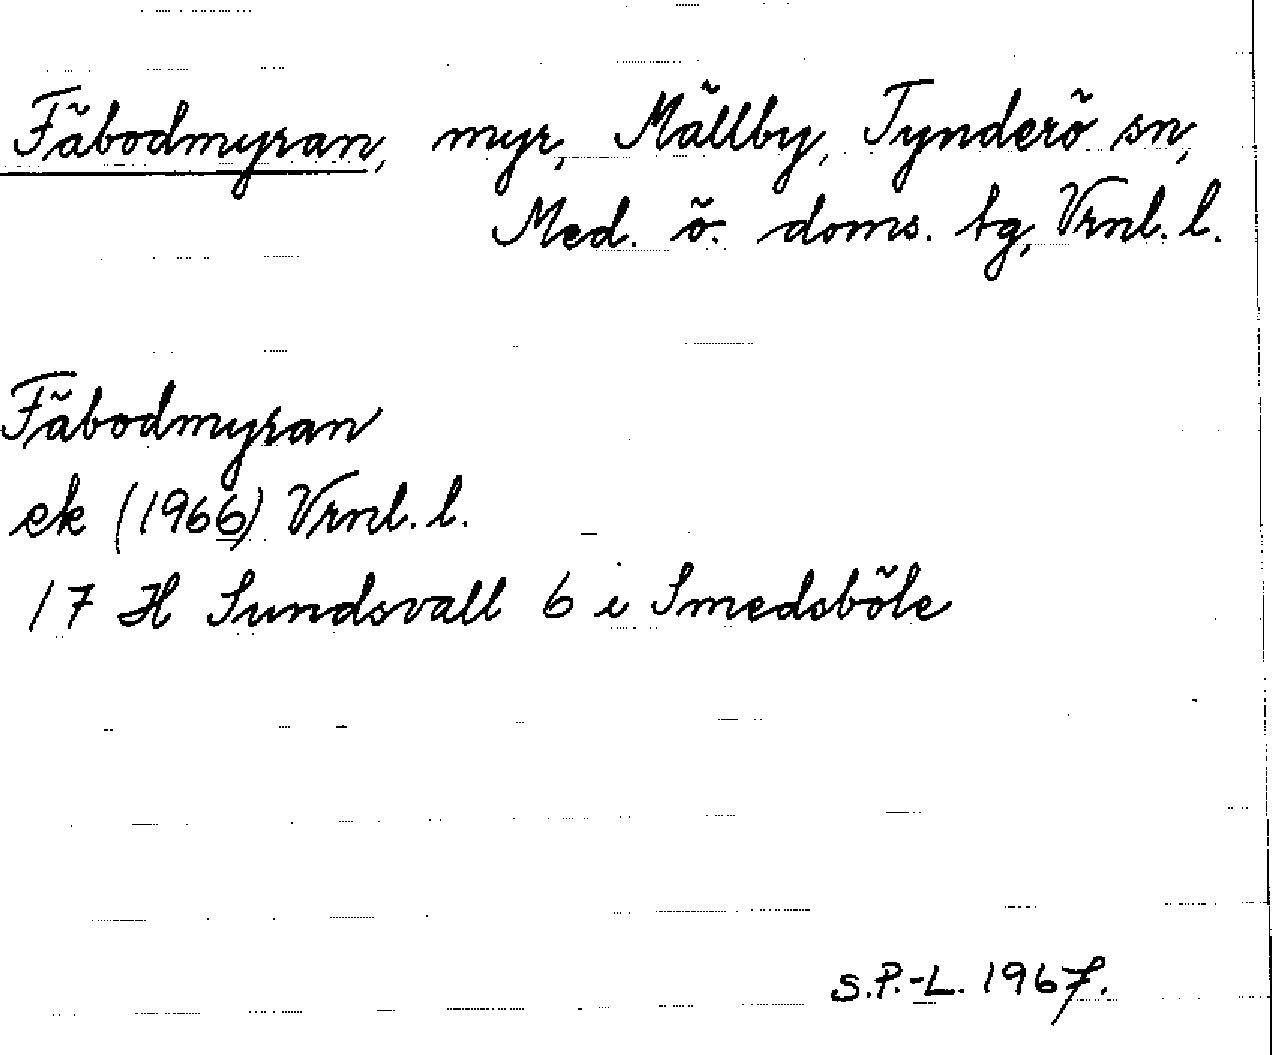 Fäbodmyran, myr, Mällby, Tynderö sn,
Med. ö. doms. tg, Vrnl. l.
Fäbodmyran
ek (1966) Vrnl. l.
17 H Sundsvall 6 i Smedsböle
S.P.-L. 1967.